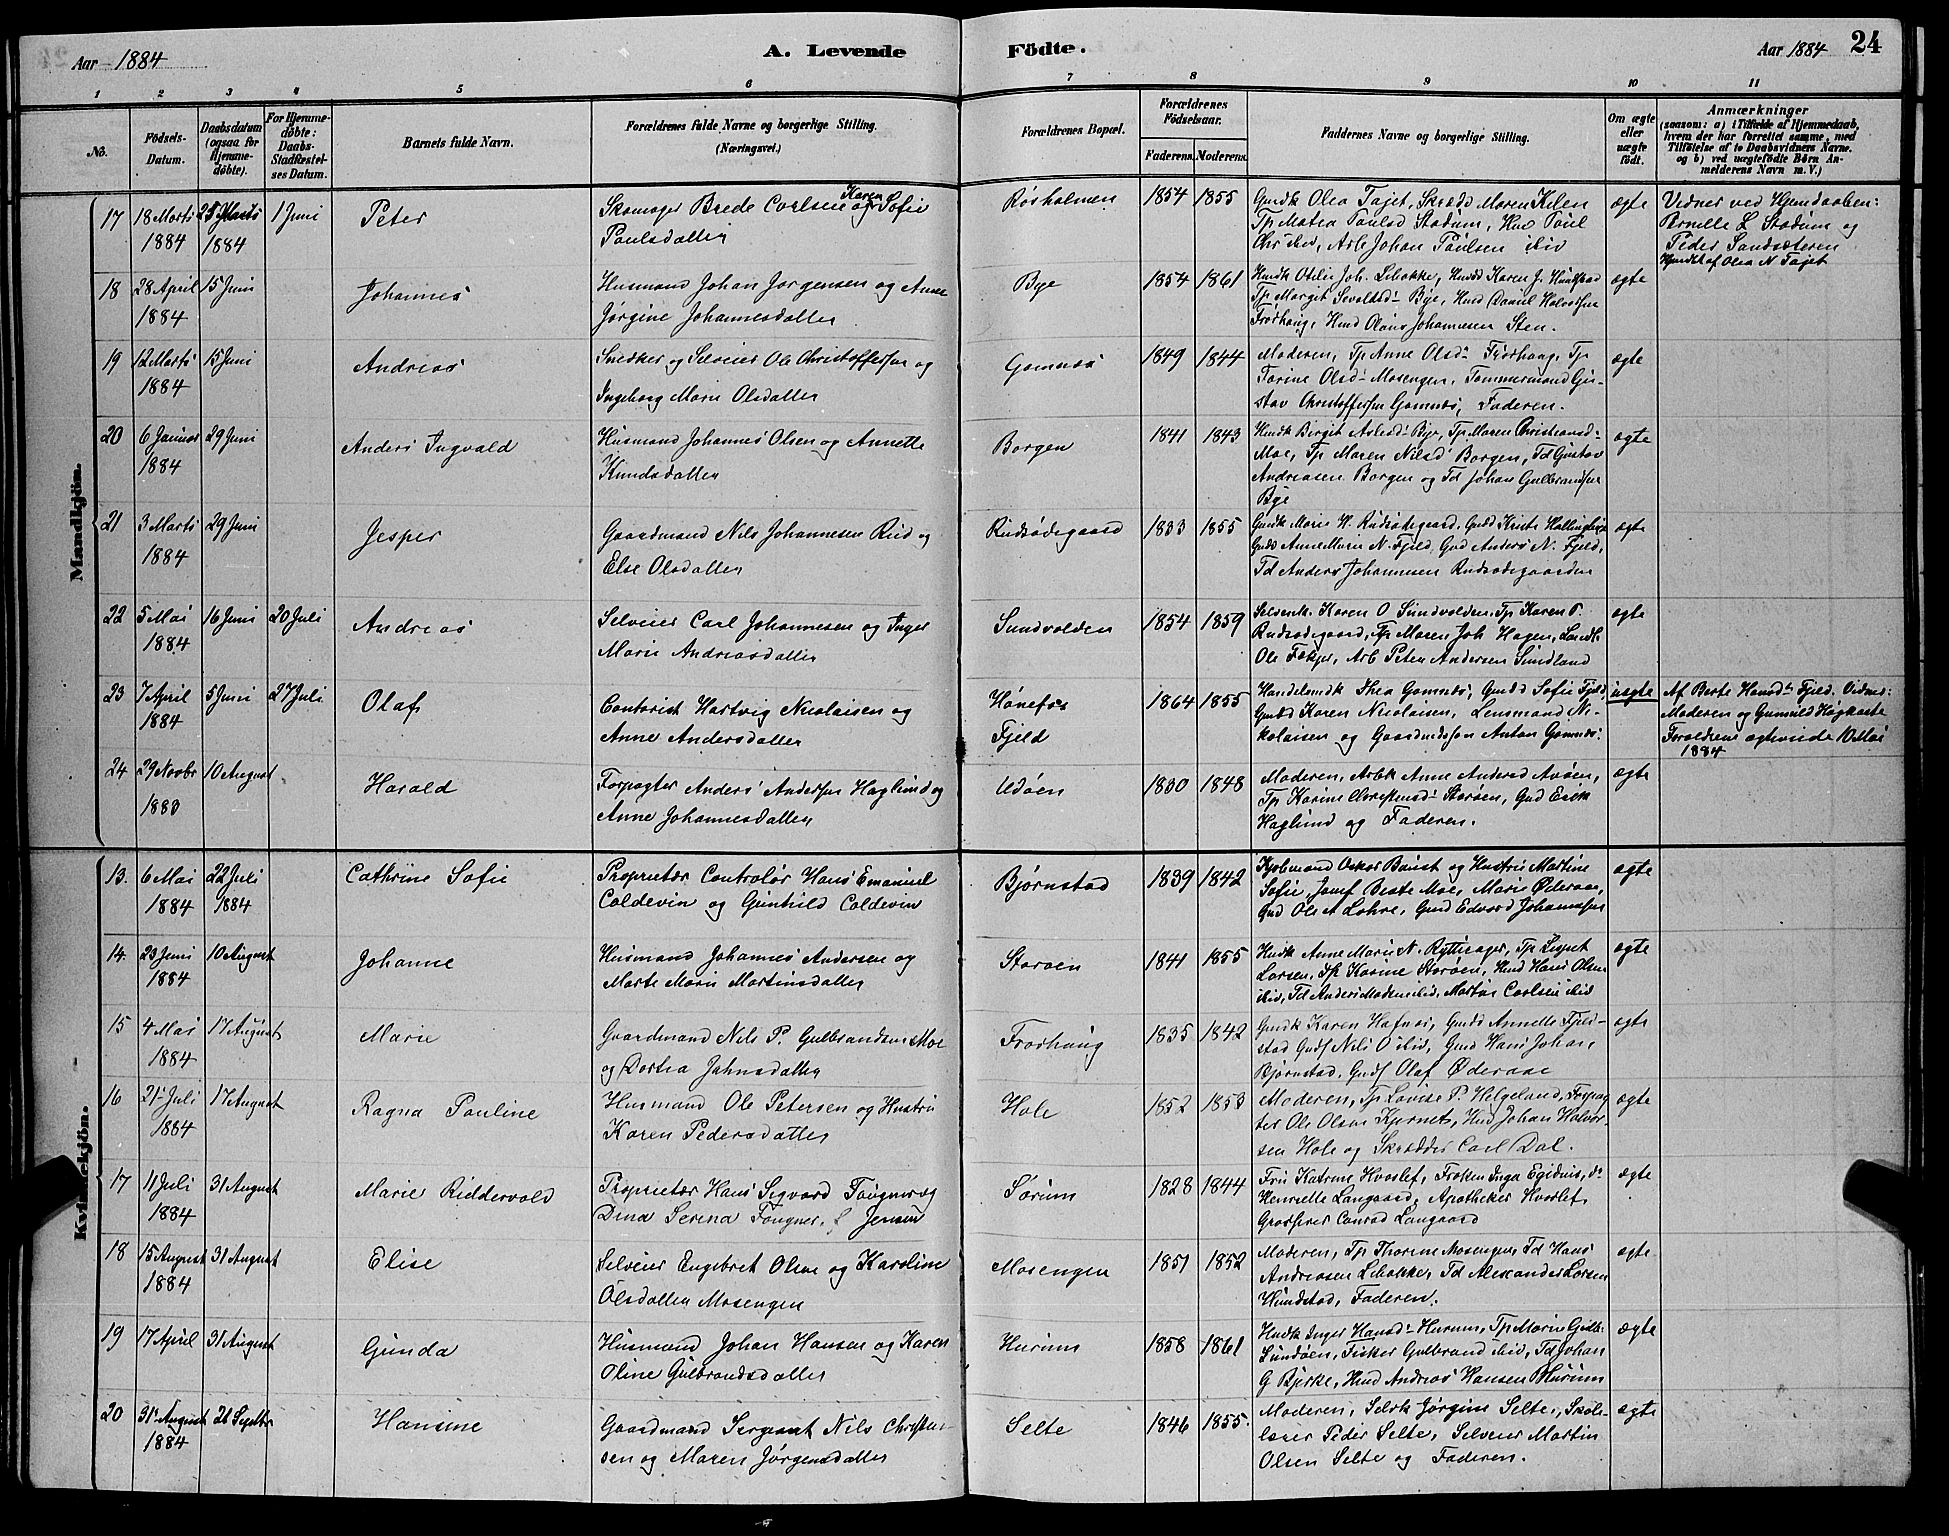 Aar 1884
A. Levende
Födte.
Aar 1884
24
1 2 3 4 5 6 7 8 9 10 11
No.
Födsels-
Datum.
Daabsdatum
(ogsaa for
Hjemme-
døbte).
For Hjemme-
døbte:
Daabs-
Stadfæstel-
ses Datum.
Barnets fulde Navn.
Forældrenes fulde Navne og borgerlige Stilling.
(Næringsvei.)
Forældrenes Bopæl.
Forældrenes
Födselsaar.
Faderens. Moderens.
Faddernes Navne og borgerlige Stilling.
Om ægte
eller
uægte
födt.
Anmærkninger
(saasom: a) i Tilfælde af Hjemmedaab,
hvem der har forrettet samme, med
Tilföielse af to Daabsvidners Navne.
og b) ved uægtefødte Börn An-
melderens Navn m. V.)
Mandkjön.
17 18 Marts 25 Marts 1 Juni Peter
1884 1884
Skomager Brede Carlsen og Karen Sofie
Paulsdatter
Røsholmen 1854 1855
Gmdk Olea Tajet, Skrædd Maren Kilen
Tp Matea Paulsd Stadum, Hmd Paul
Chr ibid, Arb Johan Paulsen ibid
ægte
Vidner ved Hjemdaaben:
Pernelle L Stadum og
Peder Sandsæteren
Hjmdøbt af Olea N Tajet
18 28 April 15 Juni Johannes
1884
Husmand Johan Jørgensen og Anne
Jørgine Johannesdatter
Bye 1854 1861
Hmdk Otilie Joh. Libakke, Hmdd Karen J. Hundstad
Tp Margit Sevaldsd Bye, Hmd Daniel Halvorsen
Frorhaug, Hmd Olaus Johannesen Sten.
ægte
19 12 Marts 15 Juni Andreas
1884
Snedker og Selveier Ole Christoffersen og
Ingeborg Marie Olsdatter
Gomnæs 1849 1844
Moderen, Tp Anne Olsd Frorhaug, Tp
Torine Olsd Mosengen, Tømmermand Gu-
stav Christoffersen Gomnæs, Faderen.
ægte
20 6 Januar 29 Juni Anders Ingvald
1884
Husmand Johannes Olsen og Annette
Knudsdatter
Borgen 1841 1843
Hmdk Birgit Aslesd Bye, Tp Maren Christiansd
Moe, Tp Maren Nilsd Borgen, Td Gustav
Andreasen Borgen og Td Johan Gulbrandsen
Bye
ægte
21 3 Marts 29 Juni Jesper
1884
Gaardmand Nils Johannesen Rud og
Else Olsdatter
Rudsødegaard 1833 1855
Gmdk Marie H. Rudsødegaard, Gmdd Kristi Hallingby
Gmdd Anne Marie N. Fjeld, Gmd Anders N. Fjeld,
Td Anders Johannesen Rudsødegaarden
ægte
22 5 Mai 16 Juni 20 Juli Andreas
1884
Selveier Carl Johannesen og Inger
Marie Andreasdatter
Sundvolden 1854 1859
Selveierk. Karen O Sundvolden, Tp Karen P.
Rudsødegaard, Tp Maren Joh Hagen, Landh.
Ole Fakjer, Arb Peter Andersen Sundland
ægte
23 7 April 5 Juni 27 Juli Olaf
1884
Contorist Hartvig Nicolaisen og
Anne Andersdatter
Hønefos
Fjeld
1864 1855
Handelsmdk Thea Gomnæs, Gmdd Sofie Fjeld
Gmdd Karen Nicolaisen, Lensmand Ni-
kolaisen og Gaardmdssøn Anton Gomnæs.
uægte
Af Berte Hansd Fjeld. Vidner:
Moderen og Gunnild Høgkastet
Forældrene ægteviede 10 Mai
1884
24 29 Novbr 10 August Harald
1883
Forpagter Anders Andersen Haglund og
Anne Johannesdatter
Udøen 1830 1848
Moderen, Arbk Anne Andersd Avøen,
Tp Karine Christensd Storøen, Gmd Erik
Haglund og Faderen.
ægte
Kvindekjön.
13. 6 Mai 22 Juli Cathrine Sofie
1884 1884
Proprietær Controlør Hans Emanuel
Coldevin og Gunhild Coldevin
Bjørnstad 1839 1842
Kjøbmand Oskar Baust og Hustru Martine
Sofie, Jomf Berte Moe, Marie Øderaa,
Gmd Ole A Lohre, Gmd Edvard Johannesen
ægte
14. 23 Juni 10 August Johanne
1884
Husmand Johannes Andersen og
Marte Marie Martinsdatter
Storøen 1841 1855
Hmdk Anne Marie N. Rytterager, Tp Lispet
Larsen, Tp Karine Storøen, Hmd Hans Olsen
ibid, Td Anders Madsen ibid, Martin Carlsen ibid
ægte
15 4 Mai 17 August Marie
1884
Gaardmand Nils P. Gulbrandsen Moe
og Dortea Jahnsdatter
Frorhaug 1835 1842
Gmdk Karen Hafnor, Gmdd Annette Fjeld-
stad Gmds Nils O ibid, Gmd Hans Johan
Bjørnstad, Gmds Olaf Øderaae
ægte
16 21 Juli 17 August Ragna Pauline
1884
Husmand Ole Petersen og Hustru
Karen Pedersdatter
Hole 1852 1853
Moderen, Tp Lovise P. Helgeland, Forpag
ter Ole Olsen Kjernet, Hmd Johan Halvor-
sen Hole og Skrædder Carl Dal.
ægte
17 11 Juli 31 August Marie Riddervold
1884
Proprietær Hans Sigvard Fougner og
Dina Serina Fougner, f Jensen
Sørum 1828 1844
Fru Katrine Hvoslef, Frøken Inga Egidius, do
Henriette Langaard, Apotheker Hvoslef,
Grosserer Conrad Langaard
ægte
18 15 August 31 August Elise
1884
Selveier Engebret Olsen og Karoline
Olsdatter Mosengen
Mosengen 1851 1852
Moderen, Tp Thorine Mosengen, Td Hans
Andreasen Libakke, Td Alexander Larsen
Hundstad, Faderen.
ægte
19 17 April 31 August Gunda
1884
Husmand Johan Hansen og Karen
Oline Gulbrandsdatter
Hurum 1858 1861
Hmdk Inger Hansd Hurum, Tp Marie Gulb.
Sundøen, Fisker Gulbrand ibid, Td Johan
G Bjerke, Hmd Andreas Hansen Hurum
ægte
20 31 August 21 Septbr Hansine
1884
Gaardmand Sergeant Nils Christian-
sen og Maren Jørgensdatter
Selte 1846 1855.
Moderen, Selvk Jørgine Selte, Skol-
lærer Peder Selte, Selveier Martin
Olsen Selte og Faderen.
ægte